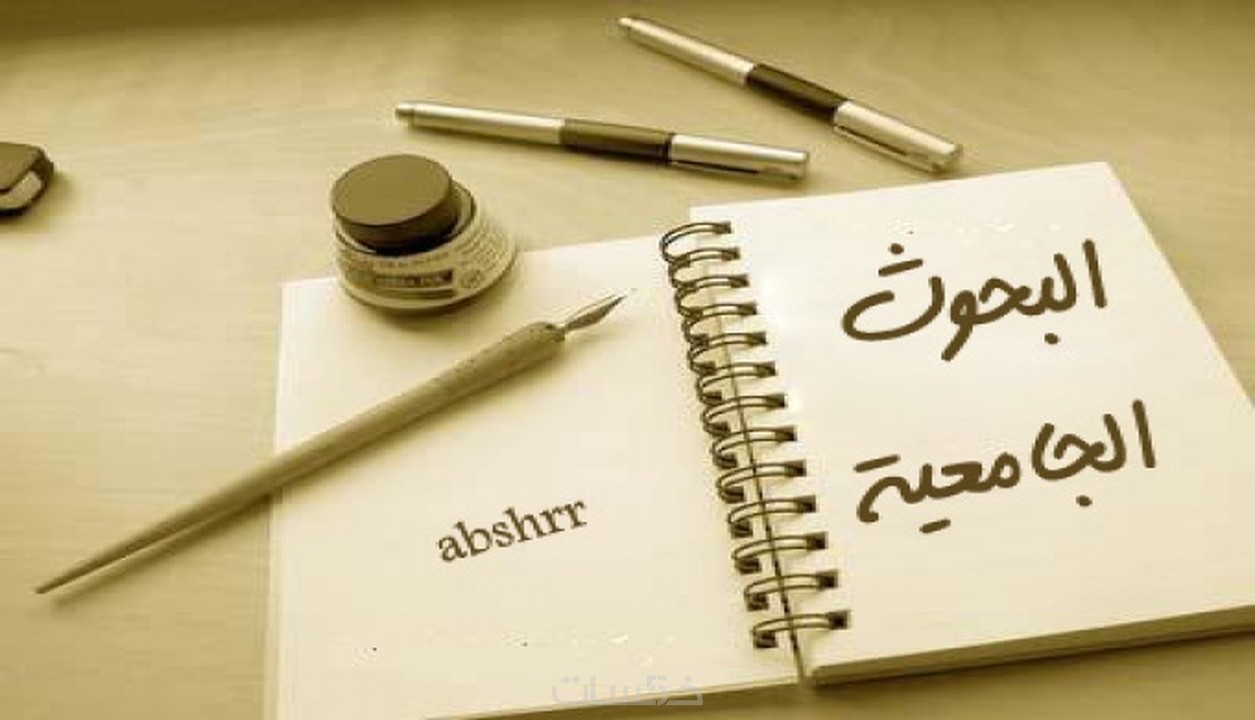 البحوث
الجامعية
abshrr
خمسات